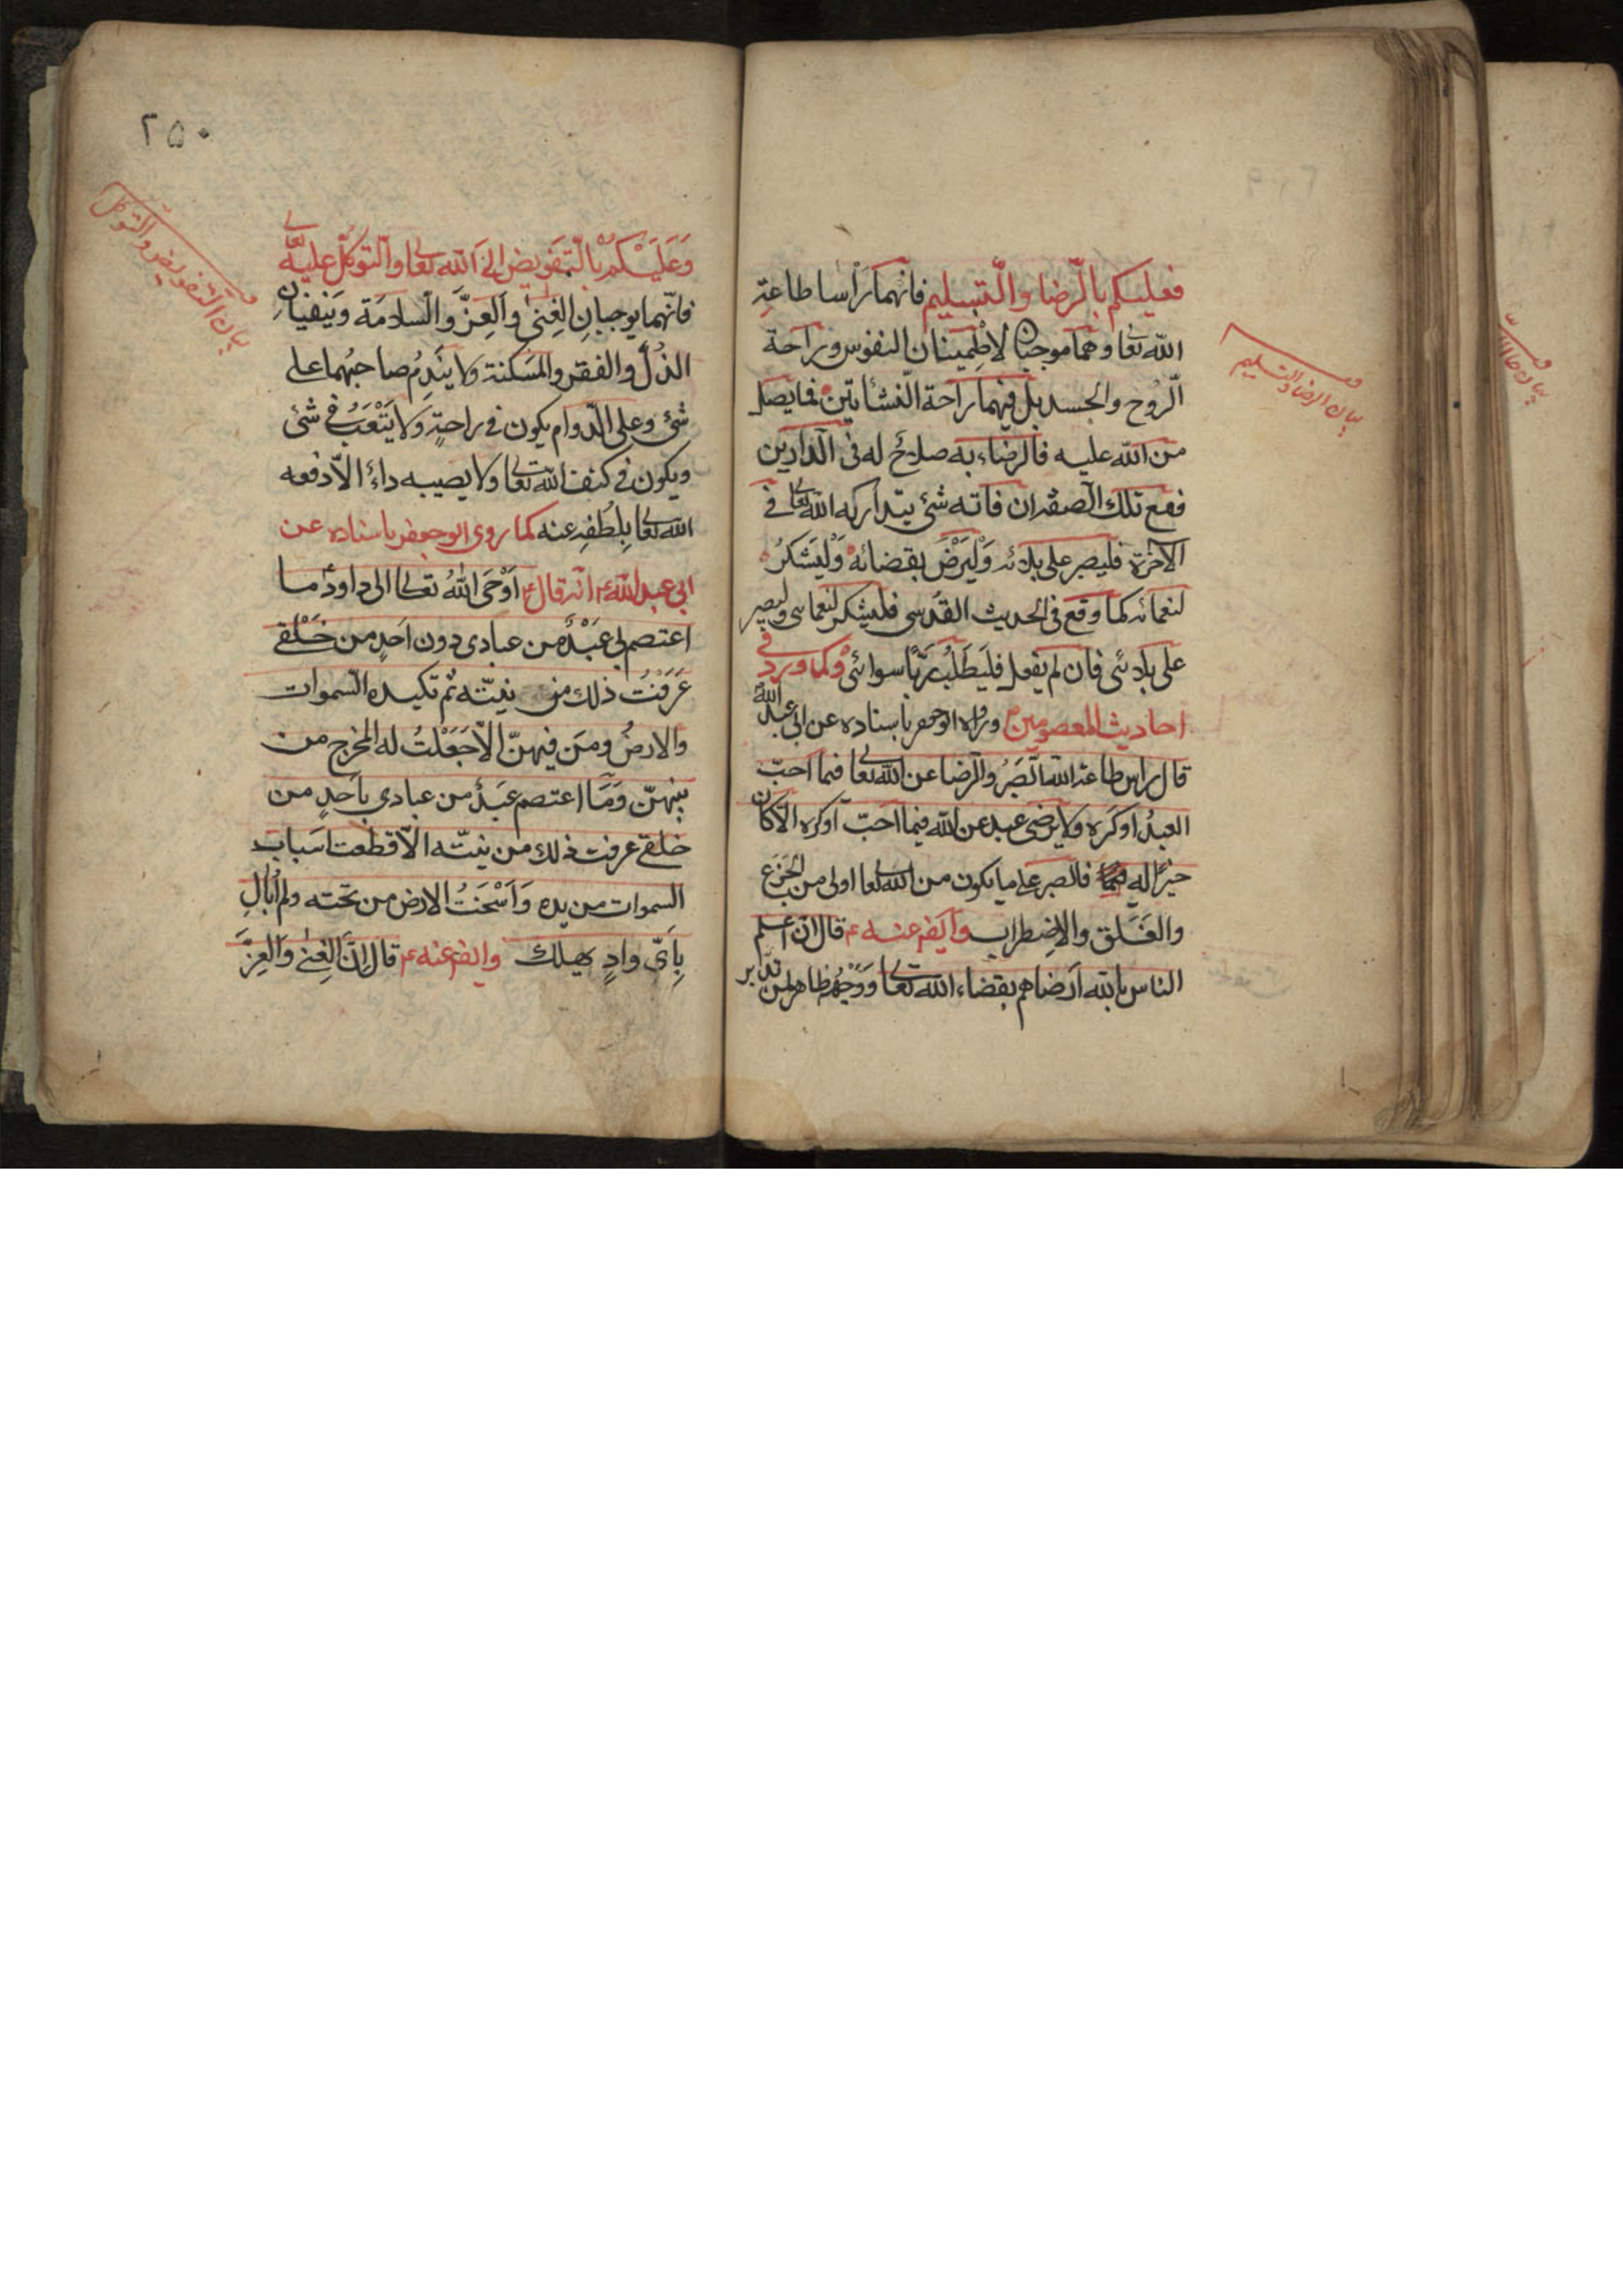 فعليكم بالرّضا والتّسليم فانهما رَأسا طاعةِ
الله تعا وهما موجبان لاطمينان النفوس وراحة
الرّوح والجسد بل فيهما راحة النشأتين فما يصل
من الله عليه فالرضاء به صلاح له فى الدارين
فمع تلك الصفة ان فاته شئ يتداركه الله تعا فى
الآخرة فليصبر على بلائه وَلْيَرْضَ بقضائه وَلْيَشكُرْ
لنعمائه كما وقع فى الحديث القدسى فليشكر لنعمائى وليصبر
على بلائى فان لم يفعل فليَطلُب رَبّاً سوائى وكما ورد فى
احاديث المعصومين ورواه ابو جعفر باسناده عن ابى عبد الله
قال راس طاعة الله الصَبرُ والرّضا عن الله تعا فيما احبّ
العبدُ او كره ولا يرضى عبد عن الله فيما احبّ او كره الّا كان
خيراً له فالصبر على ما يكون من الله تعا اولى من الجَزَع
والقَلَق والاِضطراب وايضاً عنه ع قال انّ اعلم
الناس بالله ارضاهم بقضاء الله تعا ووجهُهُ ظاهر لمن تدابر
بيان الرضا والتسليم
۲۵۰
وَعَلَيْكُمْ بالتّفويض الى الله تعا والتوكّل عليه تعا
فانّهما يوجبانِ الغِنىٰ والعِزَّ والسلامَة وَينفيانِ
الذلّ والفقر والمَسكنة ولا يندِمُ صاحبُهما على
شئ وعلى الدّوام يكون فى راحةٍ وَلا يَتْعَبُ فى شئ
ويكون فى كنف الله تعا ولا يصيبه داءٌ الّا دفعه
الله تعا بِلُطْفِه عنه كما روى ابو جعفر باسناده عن
ابى عبد الله ع انّه قال اَوْحَى اللهُ تعا الى داود ما
اعتصم بى عَبْدٌ من عبادى دون اَحدٍ من خَلْقى
عَرَفْتُ ذلك من نيّته ثم تكيده السّموات
والارضُ ومَن فيهنّ الّا جَعَلْتُ له المخرج من
بينهنّ وَمَا اعتصم عَبدٌ من عبادى باَحدٍ من
خلقى عرفت ذلك من نيّته الّا قطعت اسَباب
السموات من يده وَاَسَخْتُ الارض من تحته ولم اُبالِ
بِاَىّ وادٍ يهلك وايضاً عنه ع قال انّ الغِنىٰ وَالعِزَّ
بيان التفويض والتوكل